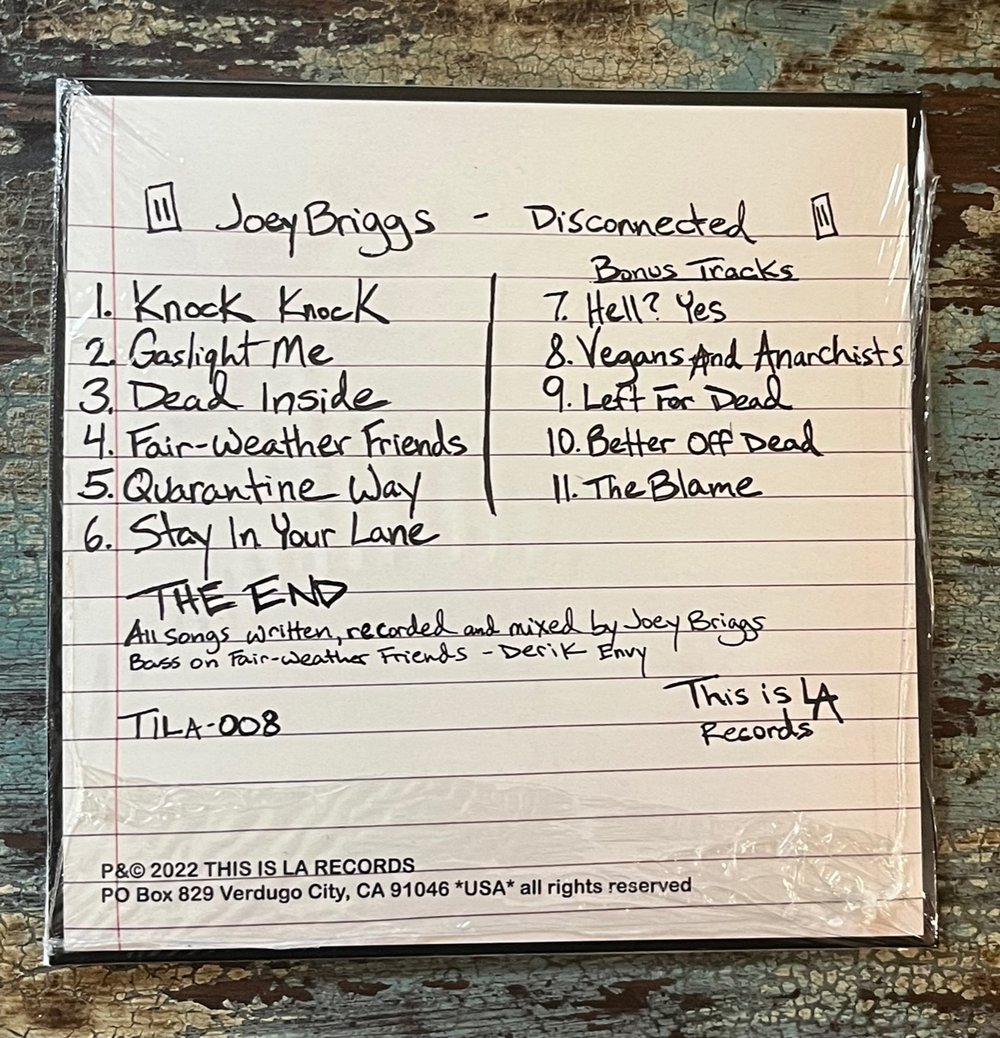 Joey Briggs - Disconnected
1. Knock Knock
2. Gaslight Me
3. Dead Inside
4. Fair-Weather Friends
5. Quarantine Way
6. Stay In Your Lane
Bonus Tracks
7. Hell? Yes
8. Vegans And Anarchists
9. Left For Dead
10. Better Off Dead
11. The Blame
THE END
All songs written, recorded and mixed by Joey Briggs
Bass on Fair-Weather Friends - Derik Envy
TILA-008
This is LA
Records
P&© 2022 THIS IS LA RECORDS
PO Box 829 Verdugo City, CA 91046 *USA* all rights reserved